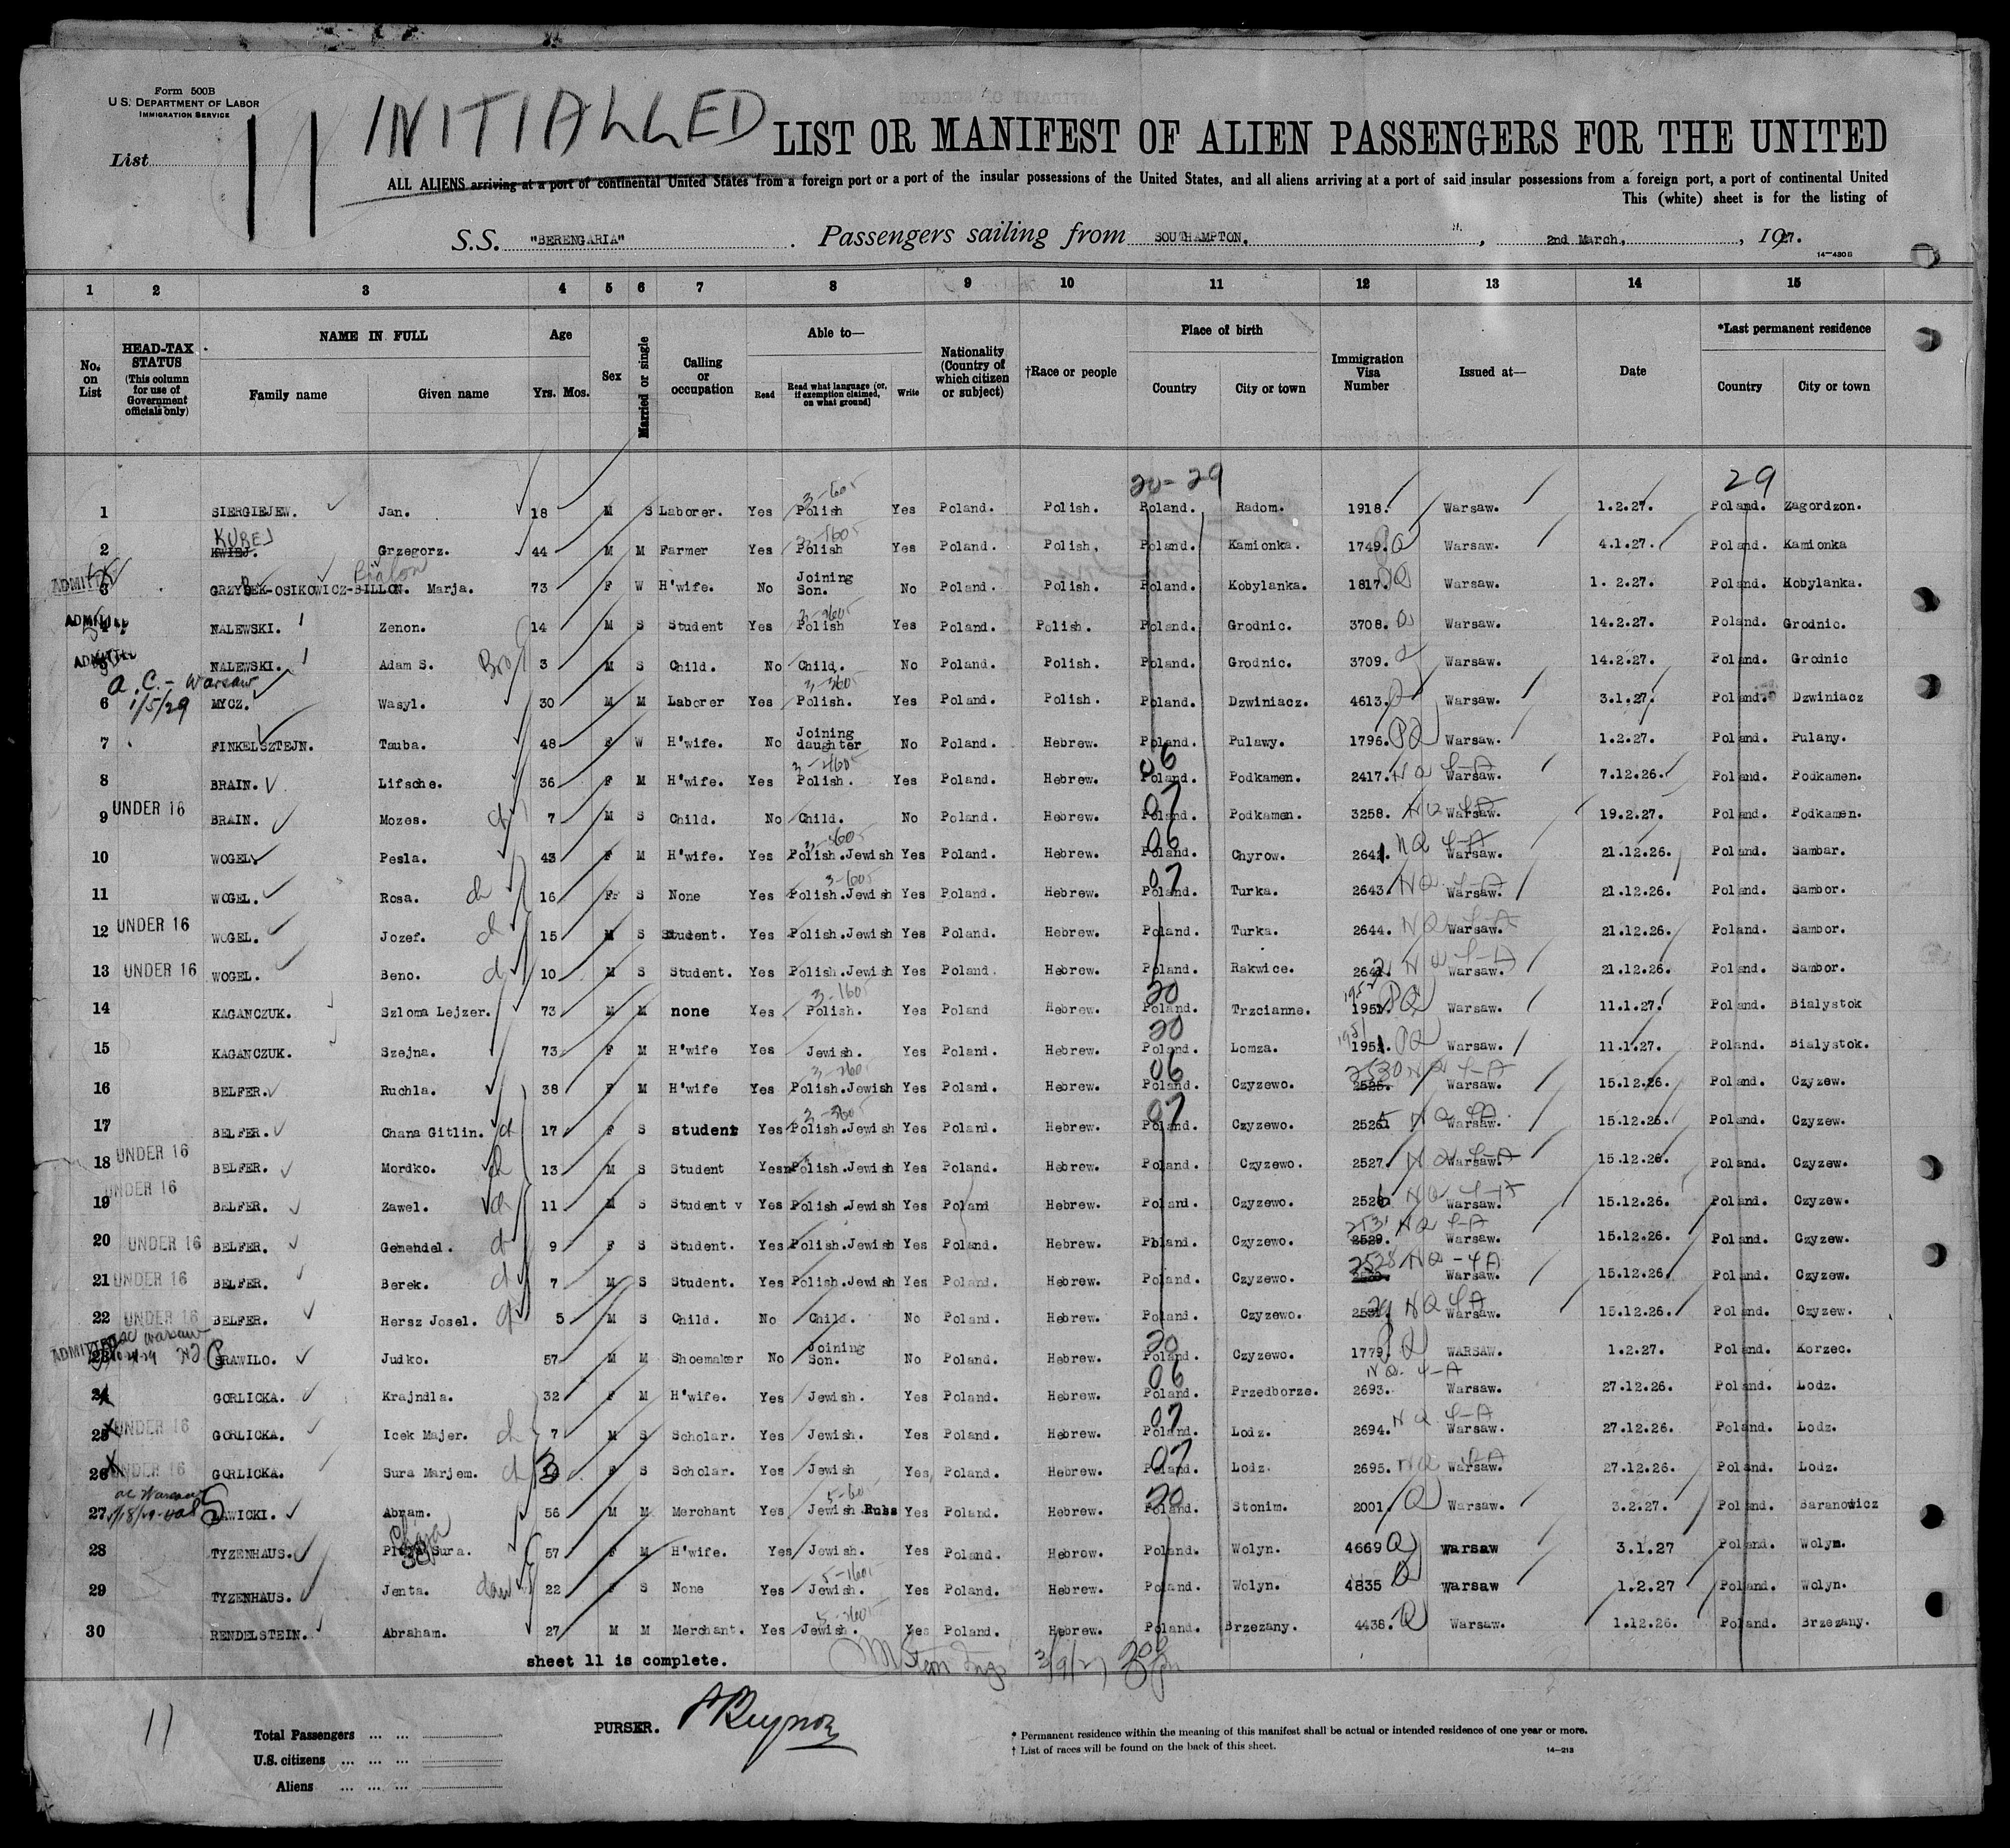 Form 500B
U.S. DEPARTMENT OF LABOR
IMMIGRATION SERVICE
List 11
INITIALLED
LIST OR MANIFEST OF ALIEN PASSENGERS FOR THE UNITED
ALL ALIENS arriving at a port of continental United States from a foreign port or a port of the insular possessions of the United States, and all aliens arriving at a port of said insular possessions from a foreign port, a port of continental United
This (white) sheet is for the listing of
S.S. "BERENGARIA" . Passengers sailing from SOUTHAMPTON. , 2nd March, , 1927.
14-430B
1 2 3 4 5 6 7 8 9 10 11 12 13 14 15
No. on List HEAD-TAX STATUS (This column for use of Government officials only) NAME IN FULL Family name Given name Age Yrs. Mos. Sex Married or single Calling or occupation Able to— Read Read what language (or, if exemption claimed, on what ground) Write Nationality (Country of which citizen or subject) †Race or people Place of birth Country City or town Immigration Visa Number Issued at— Date *Last permanent residence Country City or town
20-29 29
1 SIERGIEJEW. Jan. 18 M S Laborer. Yes Polish Yes Poland. Polish. Poland. Radom. 1918. Warsaw. 1.2.27. Poland. Zagordzon.
2 KWIEJ. KUBEJ Grzegorz. 44 M M Farmer Yes Polish Yes Poland. Polish. Poland. Kamionka. 1749. Warsaw. 4.1.27. Poland. Kamionka
ADMITTED 3 GRZYBEK-OSIKOWICZ-BILLON. Bialon Marja. 73 F W H'wife. No Joining Son. No Poland. Polish. Poland. Kobylanka. 1817. Warsaw. 1. 2.27. Poland. Kobylanka.
ADMITTED 4 NALEWSKI. Zenon. 14 M S Student Yes Polish Yes Poland. Polish. Poland. Grodnic. 3708. Warsaw. 14.2.27. Poland. Grodnic.
ADMITTED 5 NALEWSKI. Adam S. Bro 3 M S Child. No Child. No Poland. Polish. Poland. Grodnic. 3709. Warsaw. 14.2.27. Poland. Grodnic
a.C. - Warsaw
6 1/5/29 MYCZ. Wasyl. 30 M M Laborer Yes Polish. Yes Poland. Polish. Poland. Dzwiniacz. 4613. Warsaw. 3.1.27. Poland. Dzwiniacz
7 FINKELSZTEJN. Tauba. 48 F W H'wife. No Joining daughter No Poland. Hebrew. Poland. Pulawy. 1796. PQ Warsaw. 1.2.27. Poland. Pulany.
8 BRAIN. Lifsche. 36 F M H'wife. Yes Polish. Yes Poland. Hebrew. 06 Poland. Podkamen. 2417. NQ 4-A Warsaw. 7.12.26. Poland. Podkamen.
9 UNDER 16 BRAIN. Mozes. ch 7 M S Child. No Child. No Poland. Hebrew. 07 Poland. Podkamen. 3258. NQ 4-A Warsaw. 19.2.27. Poland. Podkamen.
10 WOGEL. Pesla. 43 F M H'wife. Yes Polish.Jewish Yes Poland. Hebrew. 06 Poland. Chyrow. 2641. NQ 4-A Warsaw. 21.12.26. Poland. Sambar.
11 WOGEL. Rosa. ch 16 F S None Yes Polish.Jewish Yes Poland. Hebrew. 07 Poland. Turka. 2643. NQ 4-A Warsaw. 21.12.26. Poland. Sambor.
12 UNDER 16 WOGEL. Jozef. ch 15 M S Student. Yes Polish.Jewish Yes Poland. Hebrew. Poland. Turka. 2644. NQ 4-A Warsaw. 21.12.26. Poland. Sambor.
13 UNDER 16 WOGEL. Beno. ch 10 M S Student. Yes Polish.Jewish Yes Poland. Hebrew. Poland. Rakwice. 2642 NQ 4-A Warsaw. 21.12.26. Poland. Sambor.
14 KAGANCZUK. Szloma Lejzer. 73 M M none Yes Polish. Yes Poland Hebrew. 20 Poland. Trzcianne. 1951. 1952 PQ Warsaw. 11.1.27. Poland. Bialystok
15 KAGANCZUK. Szejna. 73 F M H'wife Yes Jewish. Yes Poland. Hebrew. 20 Poland. Lomza. 1951 PQ Warsaw. 11.1.27. Poland. Bialystok.
16 BELFER. Ruchla. 38 F M H'wife Yes Polish.Jewish Yes Poland. Hebrew. 06 Poland. Czyzewo. 2525. 2530 NQ 4-A Warsaw. 15.12.26. Poland. Czyzew.
17 BELFER. Chana Gitlin. ch 17 F S student Yes Polish.Jewish Yes Poland. Hebrew. 07 Poland. Czyzewo. 2525 NQ 4A Warsaw. 15.12.26. Poland. Czyzew.
18 UNDER 16 BELFER. Mordko. ch 13 M S Student Yes Polish.Jewish Yes Poland. Hebrew. Poland. Czyzewo. 2527. NQ 4-A Warsaw. 15.12.26. Poland. Czyzew.
19 UNDER 16 BELFER. Zawel. ch 11 M S Student v Yes Polish.Jewish Yes Poland Hebrew. Poland. Czyzewo. 2526 NQ 4-A Warsaw. 15.12.26. Poland. Czyzew.
20 UNDER 16 BELFER. Genendel. ch 9 F S Student. Yes Polish.Jewish Yes Poland. Hebrew. Poland. Czyzewo. 2529. 2531 NQ 4-A Warsaw. 15.12.26. Poland. Czyzew.
21 UNDER 16 BELFER. Berek. ch 7 M S Student. Yes Polish.Jewish Yes Poland. Hebrew. Poland. Czyzewo. 2528 NQ-4A Warsaw. 15.12.26. Poland. Czyzew.
22 UNDER 16 BELFER. Hersz Josel. ch 5 M S Child. No Child. No Poland. Hebrew. Poland. Czyzewo. 2529 NQ 4A Warsaw. 15.12.26. Poland. Czyzew.
ADMITTED 23 ac Warsaw PRAWILO. Judko. 57 M M Shoemaker No Joining Son. No Poland. Hebrew. 20 Poland. Czyzewo. 1779. PQ WARSAW. 1.2.27. Poland. Korzec.
24 GORLICKA. Krajndla. 32 F M H'wife. Yes Jewish. Yes Poland. Hebrew. 06 Poland. Przedborze. 2693. NQ. 4-A Warsaw. 27.12.26. Poland. Lodz.
25 UNDER 16 GORLICKA. Icek Majer. ch 7 M S Scholar. Yes Jewish. Yes Poland. Hebrew. 07 Poland. Lodz. 2694. NQ 4-A Warsaw. 27.12.26. Poland. Lodz.
26 UNDER 16 GORLICKA. Sura Marjem. ch F S Scholar. Yes Jewish Yes Poland. Hebrew. 07 Poland. Lodz. 2695. NQ 4-A Warsaw. 27.12.26. Poland. Lodz.
ac Warsaw
27 SAWICKI. Abram. 56 M M Merchant Yes Jewish.Russ Yes Poland. Hebrew. 20 Poland. Stonim. 2001. Q Warsaw. 3.2.27. Poland. Baranowicz
28 TYZENHAUS. Chaja Sura. 57 F M H'wife. Yes Jewish. Yes Poland. Hebrow. Poland. Wolyn. 4669 Q Warsaw 3.1.27 Poland. Wolyn.
29 TYZENHAUS. Jenta. dau 22 F S None Yes Jewish. Yes Poland. Hebrew. Poland. Wolyn. 4835 Q Warsaw 1.2.27 Poland. Wolyn.
30 RENDELSTEIN. Abraham. 27 M M Merchant. Yes Jewish. Yes Poland. Hebrew. Poland. Brzezany. 4438. Q Warsaw. 1.12.26. Poland. Brzezany.
sheet 11 is complete. 3/9/27
11
Total Passengers ... ...
U.S. citizens ... ... ...
Aliens ... ... ...
PURSER.
* Permanent residence within the meaning of this manifest shall be actual or intended residence of one year or more.
† List of races will be found on the back of this sheet.
14-213